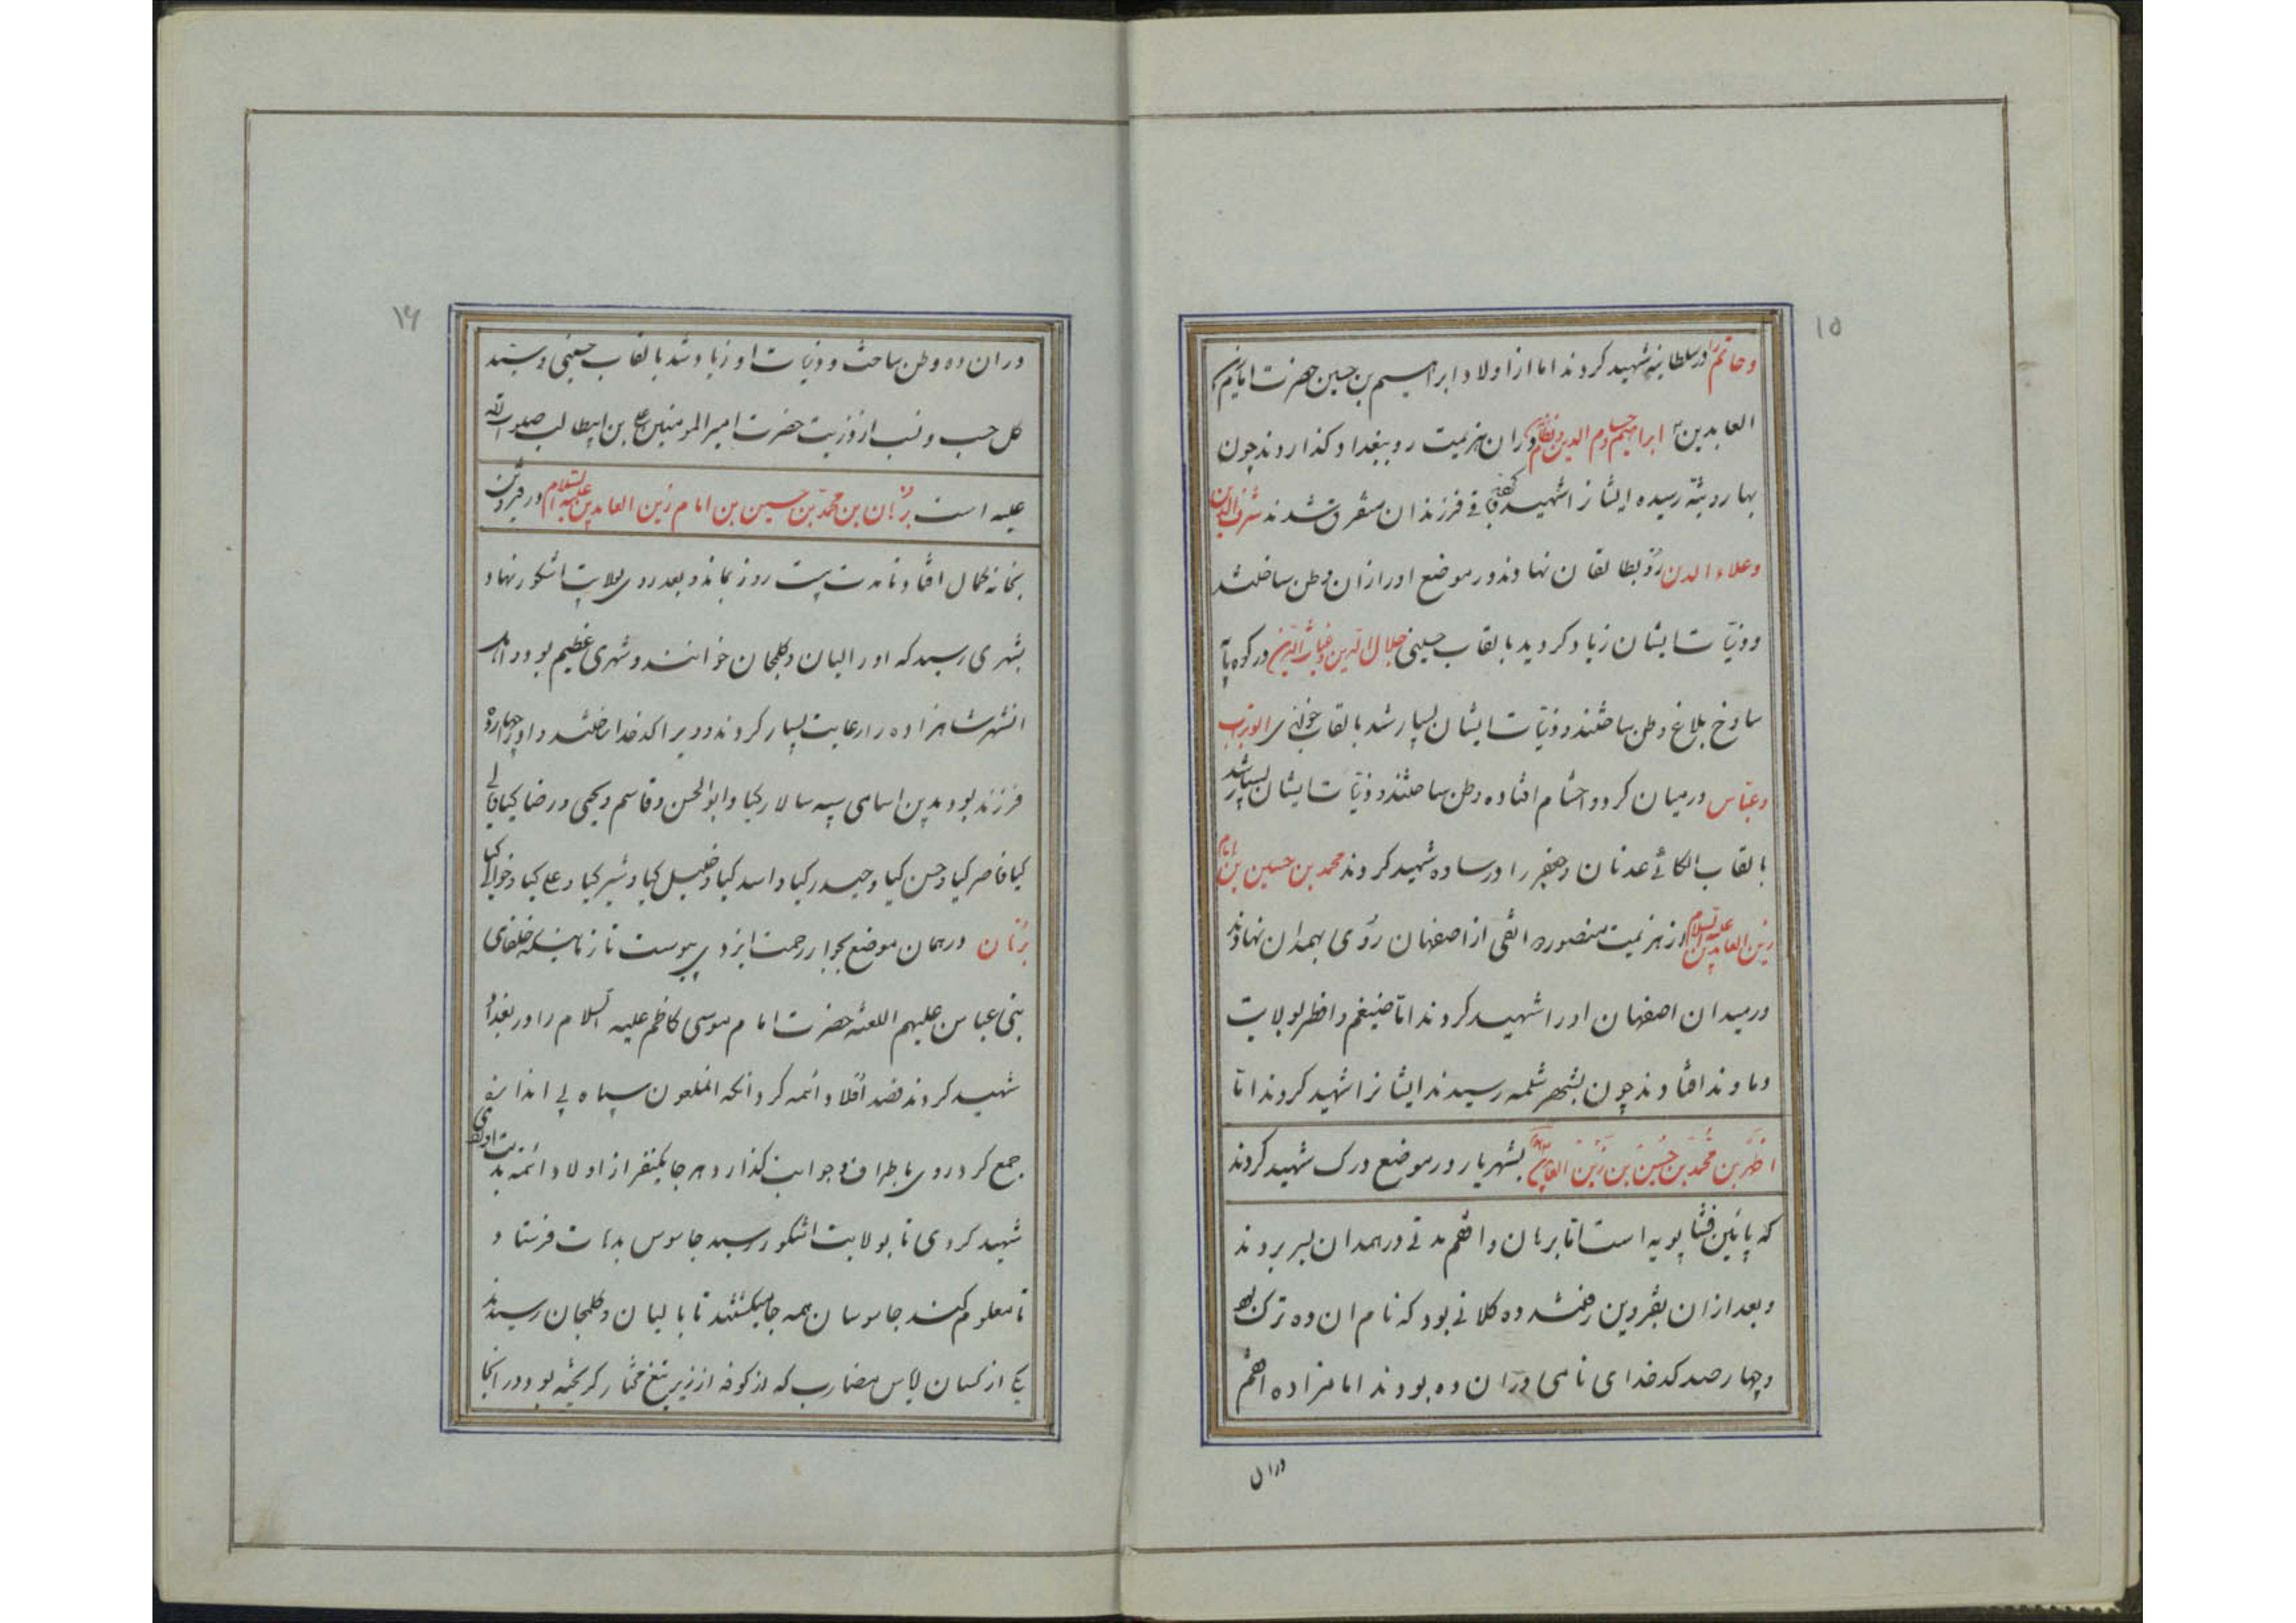 ۱۵
و حاتم را در سلطانیه شهید کردند اما از اولاد ابراهیم بن حسین حضرت امام زین
العابدین ابراهیم و حسام الدین و نظام دران هزیمت رو ببغداد کذاردند چون
بهاردیّه رسیده ایشانرا شهید باقی فرزندان متفرق شدند شرف الدین
و علاء الدین رو بطالقان نهادند در موضع اورازان وطن ساختند
و ذریّات ایشان زیاد کردید بالقاب حسینی جلال الدین و غیاث الدین در کوه پایه
ساوخ بلاغ وطن ساختند و ذریّات ایشان بسیار شد بالقاب ابوتراب
و عبّاس در میان کرد و احشام افتاده وطن ساختند و ذریّات ایشان بسیار شد
بالقاب الکائی عدنان و جعفر را در ساوه شهید کردند محمد بن حسین بن امام
زین العابدین علیه السلام از هزیمت منصوره القی از اصفهان روی بهمدان نهادند
در میدان اصفهان اورا شهید کردند امّا ضیغم و اظهر بولایت
دماوند افتادند چون بشهر شلمه رسیدند ایشانرا شهید کردند امّا
اظهر بن محمّد بن حسین بن زین العابدین بشهریار در موضع ورک شهید کردند
که پائین فشاپویه است امّا برهان و اضخم مدتی در همدان بسر بردند
و بعد از ان بقزوین رفتند ده کلانی بود که نام ان ده ترک بود
و چهار صد کدخدای نامی دران ده بودند امامزاده اضخم
دران
۱۶
دران ده وطن ساخت و ذریّات او زیاد شد بالقاب حسینی و سید
کل حسب و نسب از ذریت حضرت امیر المومنین علی بن ابیطالب صلوات الله
علیه است برهان بن محمّد بن حسین بن امام زین العابدین علیه السلام در قزوین
بخانه کمال افتاد تا مدت بیست روز بماند و بعد روی بولایت اشکور نهاد
بشهری رسید که اورا الیان و کلجان خوانند و شهری عظیم بود و اهل
انشهر شاهزاده را رعایت بسیار کردند و ویرا کدخدا ساختند و اورا چهارده
فرزند بود بدین اسامی سپه سالار کیا و ابوالحسن و قاسم و یحیی و رضا کیا
کیا ناصر کیا و حسن کیا و حیدر کیا و اسد کیا و خلیل کیا و شیر کیا و علی کیا و
برهان در همان موضع بجوار رحمت ایزدی پیوست تا زمانیکه خلفای
بنی عباس علیهم اللعنه حضرت امام موسی کاظم علیه السلام را در بغداد
شهید کردند قصد اولاد ائمه کرد انکه انملعون سپاه بی اندازه
جمع کرد روی باطراف و جوانب کذارد هر جا یکنفر از اولاد ائمّه بدست اوافتادی
شهید کردی تا بولایت اشکور رسید جاسوس بدهات فرستاد
تا معلوم کنند جاسوسان همه جا میکشتند تا بالیان و کلجان رسیدند
یکی از کسان لباس مضارب که از کوفه از زیر تیغ مختار کریخته بود در انجا